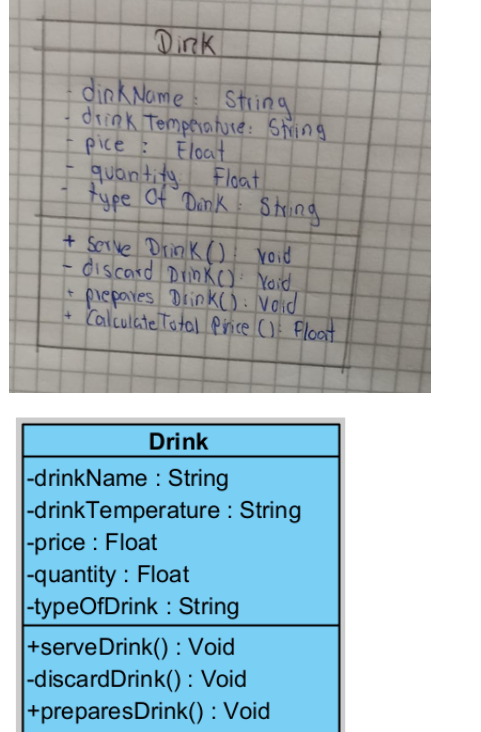 Drink
- dinkName : String
- drink Temperature: String
- pice : Float
- quantity: Float
- type Of Dink : String
+ Serve Drink() : Void
- discard Drink() : Void
+ prepares Drink() : Void
+ CalculateTotal Price () : Float
Drink
-drinkName : String
-drinkTemperature : String
-price : Float
-quantity : Float
-typeOfDrink : String
+serveDrink() : Void
-discardDrink() : Void
+preparesDrink() : Void